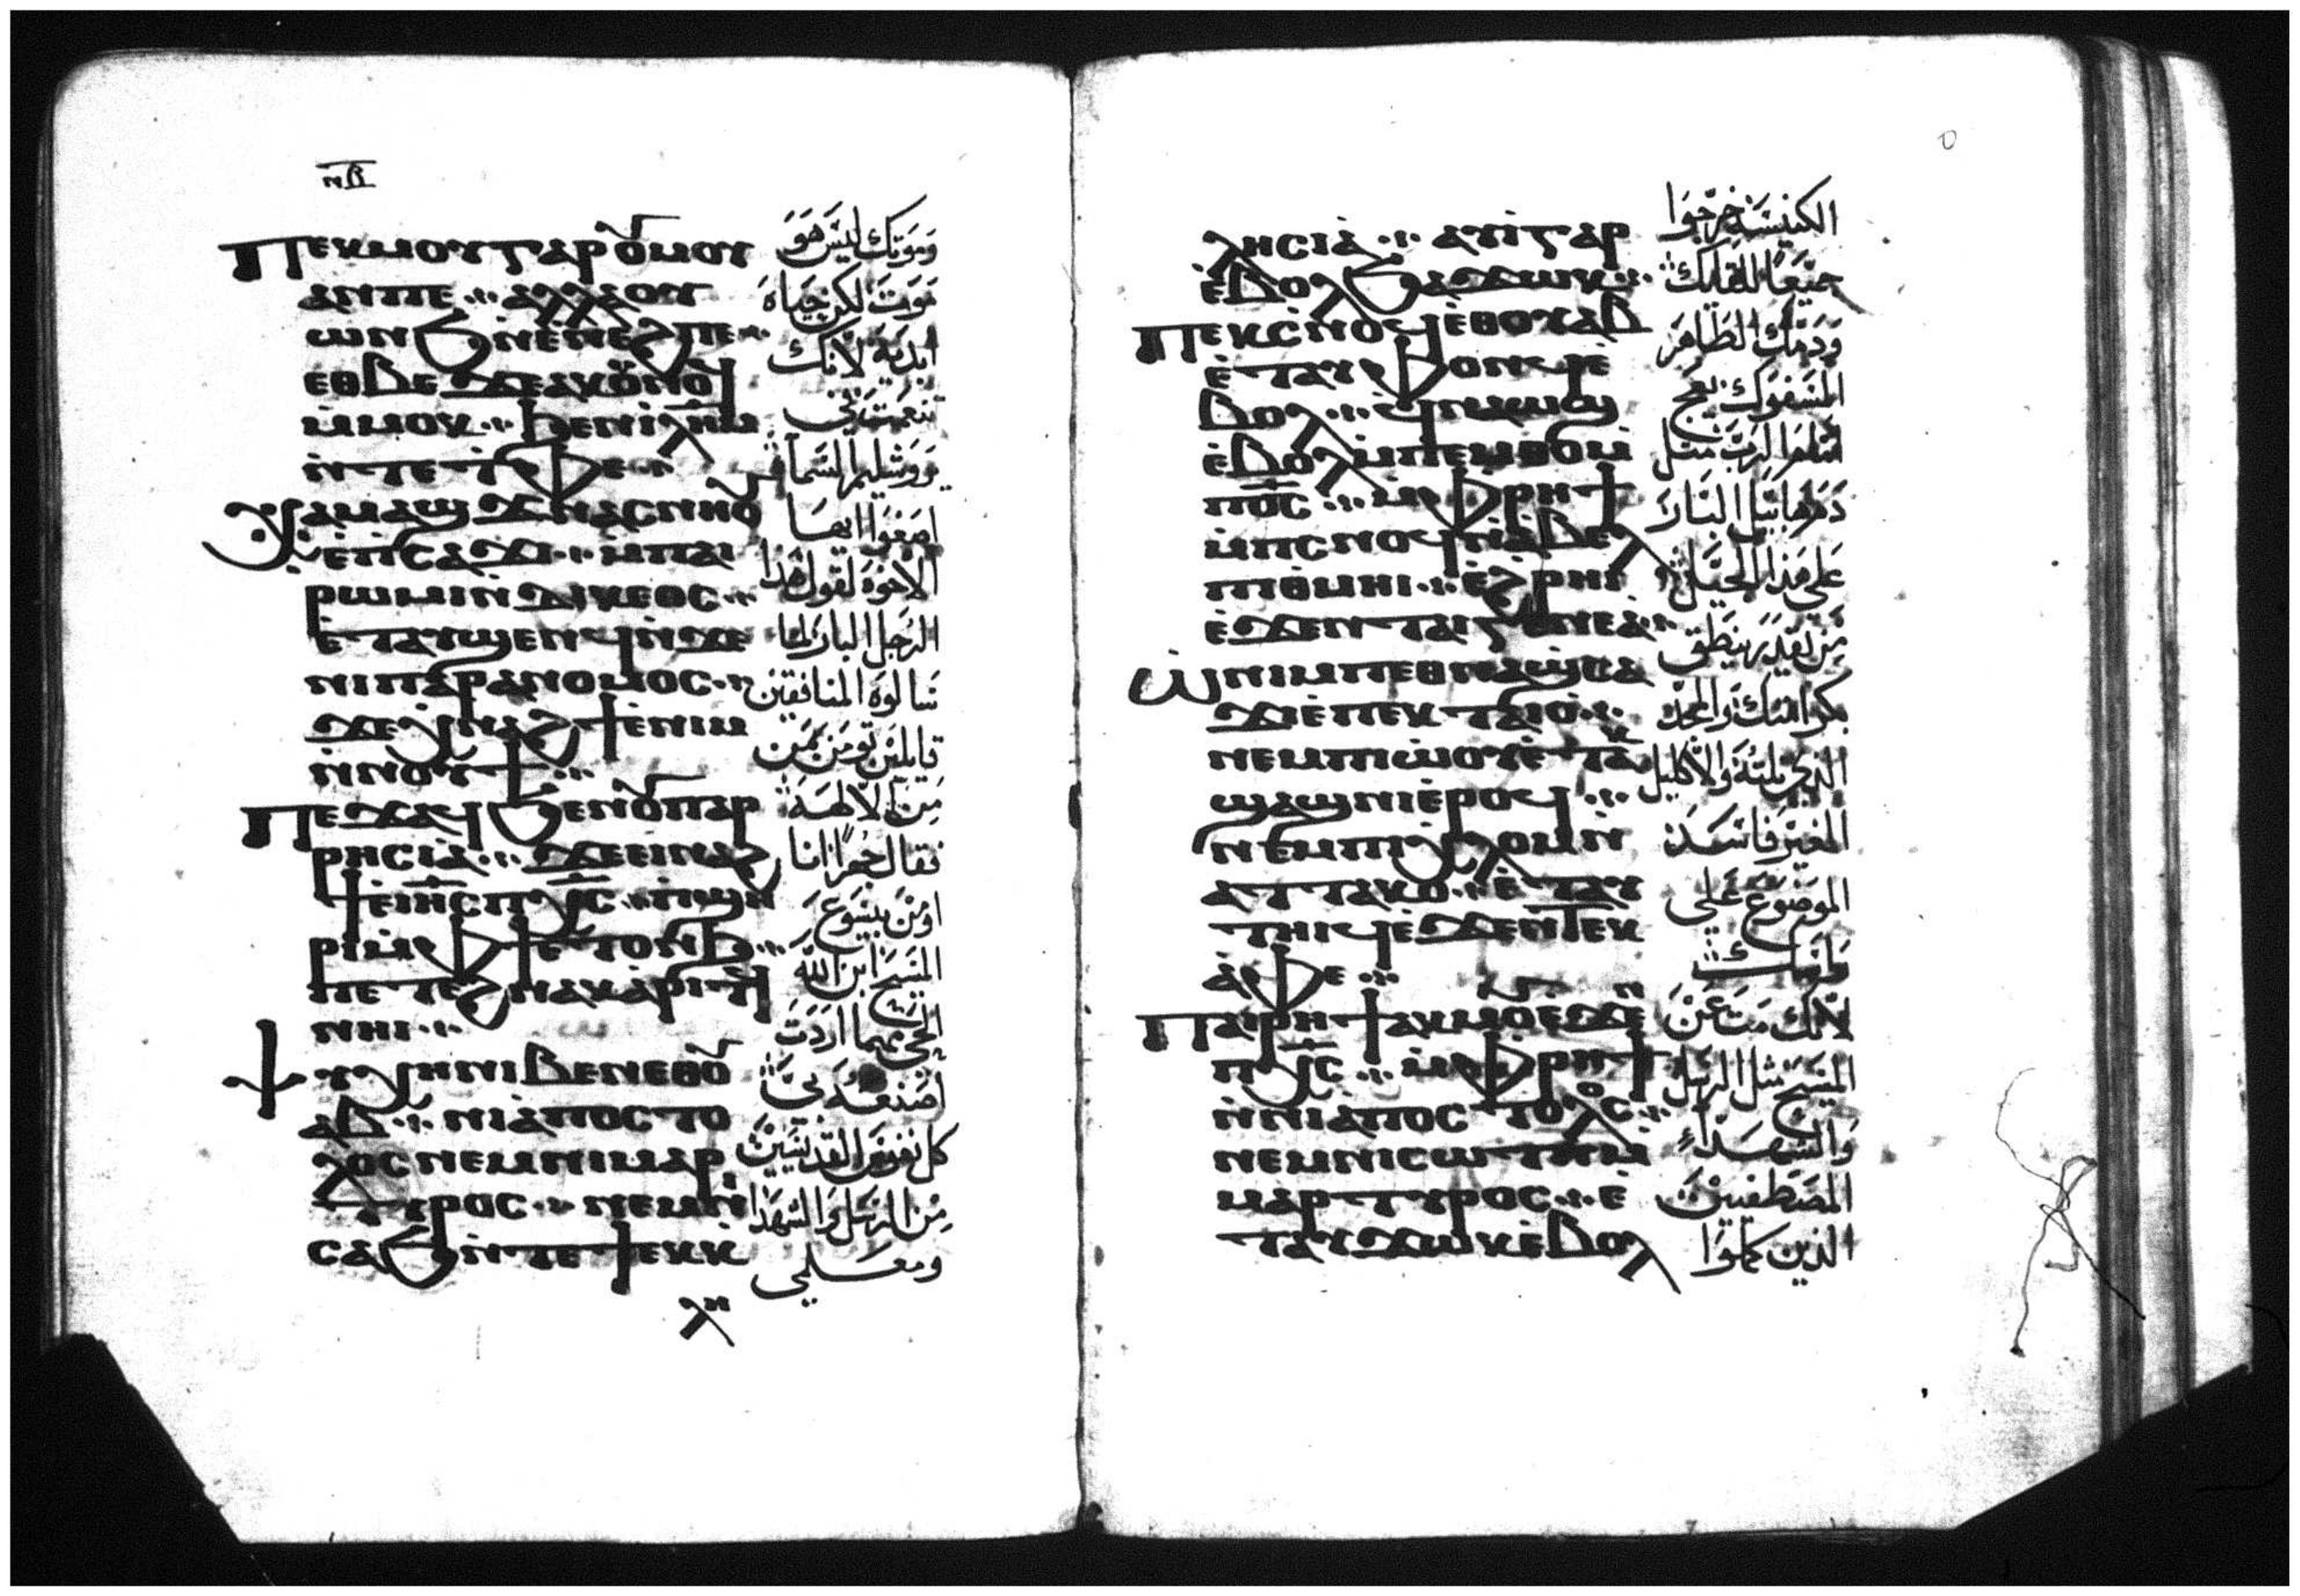 ⲛⲏ
ⲡⲉⲕⲙⲟⲩⲅⲁⲣⲟⲩⲙⲟⲩ
ⲁⲛⲡⲉ ⁘ ⲁⲗⲗⲁⲟⲩ
ⲱⲛϧⲛ̀ⲉⲛⲉϩⲡⲉ ⁘
ⲉⲑⲃⲉϫⲉⲁⲕⲟⲩⲛⲟϥ
ⲙ̀ⲙⲟⲕ ⁘ ϧⲉⲛⲓ̅ⲗ̅ⲏ̅ⲙ̅
ⲛ̀ⲧⲉⲧ̀ⲫⲉ ⁘
ⲭⲁⲙⲁϣϫⲛⲁⲥⲛⲏⲟⲩ
ⲉ̀ⲡⲥⲁϫⲓ ⁘ ⲙ̀ⲡⲁⲓ
ⲣⲱⲙⲓⲛ̀ϫⲓⲕⲉⲟⲥ ⁘
ⲉ̀ⲧⲁⲩϣⲉⲛϥⲛ̀ϫⲉ
ⲛⲓⲡⲁⲣⲁⲛⲟⲙⲟⲥ ⁘
ϫⲉⲭⲛⲁϩϯⲉ̀ⲛⲓⲙ
ⲛ̀ⲛⲟⲩϯ ⁘
ⲡⲉϫⲁϥϧⲉⲛⲟⲩⲡⲁⲣ
ⲣⲏⲥⲓⲁ̀ ⁘ ϫⲉⲉⲓⲛⲁϩ
ϯⲉ̀ⲓⲏ̅ⲥ̅ⲡⲭ̅ⲥ̅ ⁘ ⲡ̀ϣⲏ
ⲣⲓⲙ̀ⲫϯⲉⲧⲟⲛϧ ⁘
ⲡⲉⲧⲉϩⲛⲁⲕⲁⲣⲓⲧϥ
ⲛⲏⲓ ⁘
ⲯⲩⲭⲏⲛⲓⲃⲉⲛⲉⲑⲟⲩ
ⲁⲃ ⁘ ⲛⲓⲁ̀ⲡⲟⲥⲧⲟ
ⲗⲟⲥⲛⲉⲙⲛⲓⲙⲁⲣ
ⲧⲩⲣⲟⲥ ⁘ ⲛⲉⲙⲛ
ⲥⲁϧⲛ̀ⲧⲉϯⲉⲕⲕ
ⲗⲏ
وموتك ليس هو
موت لكن حياة
ابدية لانك
تنعمت في
يروشليم السما
اصغوا ايها
الاخوة لقول هذا
الرجل البار لما
سالوه المنافقين
قايلين تومن بمن
من الالهة
فقال جهرًا انا
اومن بيسوع
المسيح ابن الله
الحي مهما اردت
اصنعه بي
كل نفوس القديسين
من الرسل والشهدا
ومعلمي
ⲗⲏⲥⲓⲁ̀ ⁘ ⲁⲩⲓ̀ⲅⲁⲣ
ⲉ̀ⲃⲟⲗϧⲁϫⲱⲕ ⁘
ⲡⲉⲕⲥ̀ⲛⲟϥⲉ̀ⲑⲟⲩⲁⲃ
ⲉ̀ⲧⲁⲩⲫⲟⲛϥⲉ̀
ⲃⲟⲗ ⁘ ϥⲛⲁⲱϣ
ⲉ̀ⲃⲟⲗⲙ̀ⲡⲉⲙⲑⲟⲙ̀
ⲡⲟ̅ⲥ̅ ⁘ ⲙ̀ⲫⲣⲏϯ
ⲙ̀ⲡⲥⲛⲟϥⲛ̀ⲁ̀ⲃⲉⲗ
ⲡⲓⲑⲙⲏⲓ ⁘ ⲉ̀ϩⲣⲏⲓ
ⲉ̀ϫⲉⲛⲧⲁⲓⲅⲉⲛⲉⲁ̀ ⁘
ⲱ̀ⲛⲓⲙⲡⲉⲑⲛⲁϣ̀ⲥⲁ
ϫⲓⲉ̀ⲡⲉⲕⲧⲁⲓⲟ̀ ⁘
ⲛⲉⲙⲡⲓⲱ̀ⲟⲩⲉ̀ⲧⲁⲕ
ϣⲁϣⲛⲓⲉ̀ⲣⲟϥ ⁘
ⲛⲉⲙⲡⲓⲭⲗⲟⲙⲛ̀
ⲁⲧⲧⲁⲕⲟ ⁘ ⲉ̀ⲧⲁⲩ
ⲧⲏⲓϥⲉ̀ϫⲉⲛⲧⲉⲕ
ⲁ̀ⲫⲉ ⁘
ⲡⲁⲓⲣⲏϯⲁⲕⲙⲟⲩⲉ̀ϫⲉⲛ
ⲡⲭ̅ⲥ̅ ⁘ ⲙ̀ⲫⲣⲏϯ
ⲛ̀ⲛⲓⲁ̀ⲡⲟⲥⲧⲟⲗⲟⲥ ⁘
ⲛⲉⲙⲛⲓⲥⲱⲧⲡⲙ̀
ⲙⲁⲣⲧⲩⲣⲟⲥ ⁘ ⲉ̀
ⲧⲁⲩϫⲱⲕⲉ̀ⲃⲟⲗ
الكنيسة خرجوا
جميعًا للقايك
ودمك الطاهر
المسفوك يعج
امام الرب مثل
دم هابيل البار
على هذا الجيل
من يقدر ينطق
بكرامتك والمجد
الذي نلته والاكليل
الموضوع على
راسك
لانك مت عن
المسيح مثل الرسل
والشهداء
المصطفيين
الذين كملوا